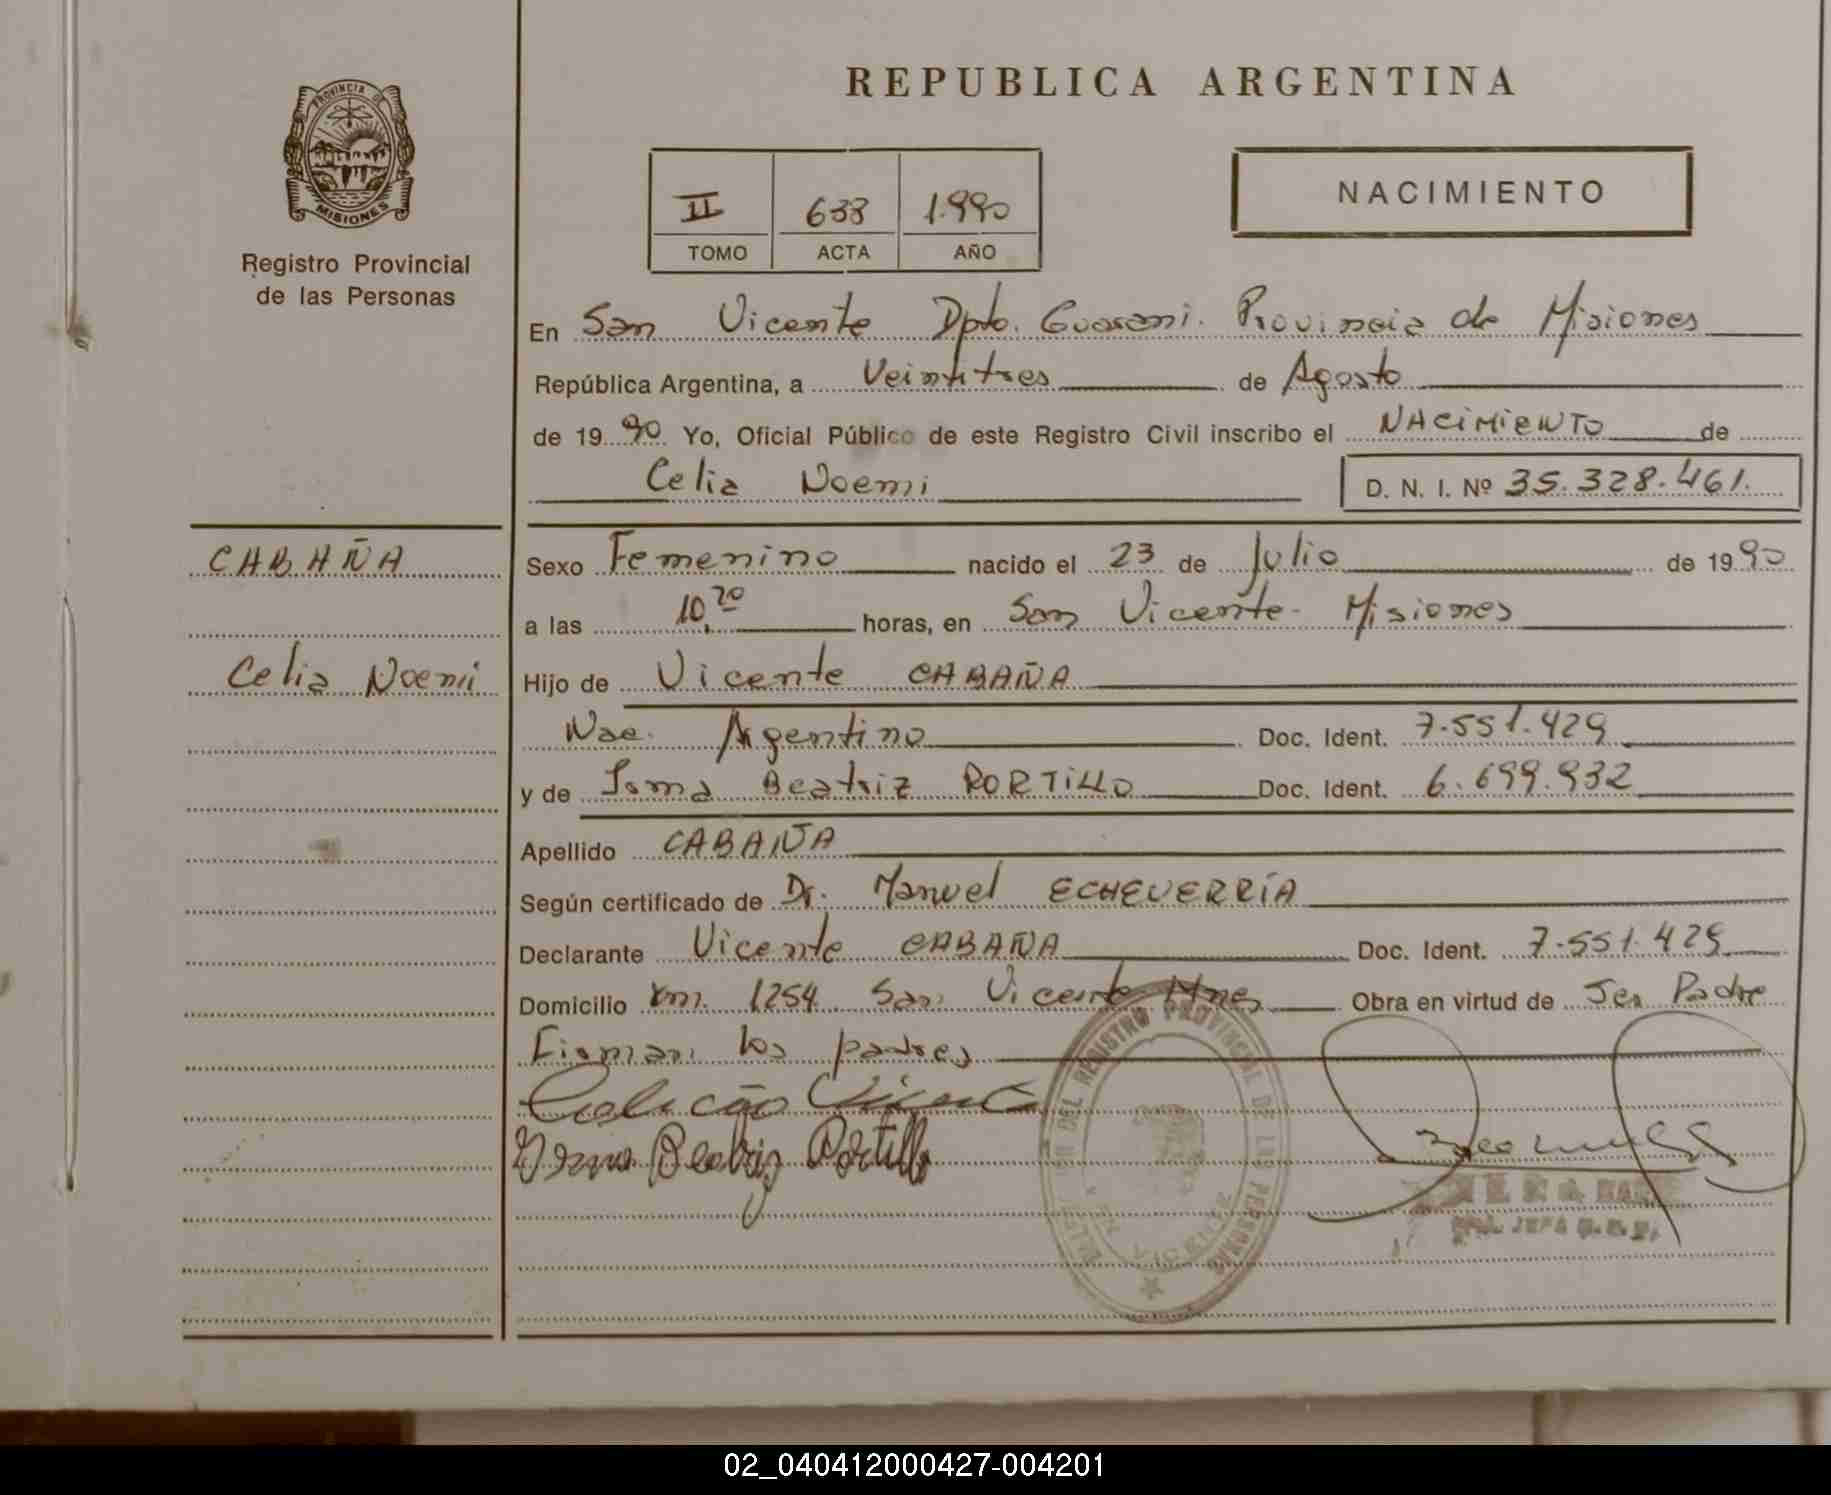 PROVINCIA DE
MISIONES
Registro Provincial
de las Personas
REPUBLICA ARGENTINA
II 638 1.990
TOMO ACTA AÑO
NACIMIENTO
En San Vicente Dpto. Guarani. Provincia de Misiones
República Argentina, a Veintitres de Agosto
de 1990 Yo, Oficial Público de este Registro Civil inscribo el NACIMIENTO de
Celia Noemi D. N. I. Nº 35.328.461.
CABAÑA
Celia Noemi
Sexo Femenino nacido el 23 de Julio de 1990
a las horas, en San Vicente - Misiones
Hijo de Vicente CABAÑA
Nac. Argentino Doc. Ident. 7.551.429
y de Irma Beatriz PORTILLO Doc. Ident. 6.699.932
Apellido CABAÑA
Según certificado de Dr. Manuel ECHEVERRÍA
Declarante Vicente CABAÑA Doc. Ident. 7.551.429
Domicilio km. 1254 San Vicente Mnes Obra en virtud de Ser Padre
Firman los padres
Irma Beatriz Portillo
DEL REGISTRO PROVINCIAL DE LAS PERSONAS
VICENTE
02_040412000427-004201